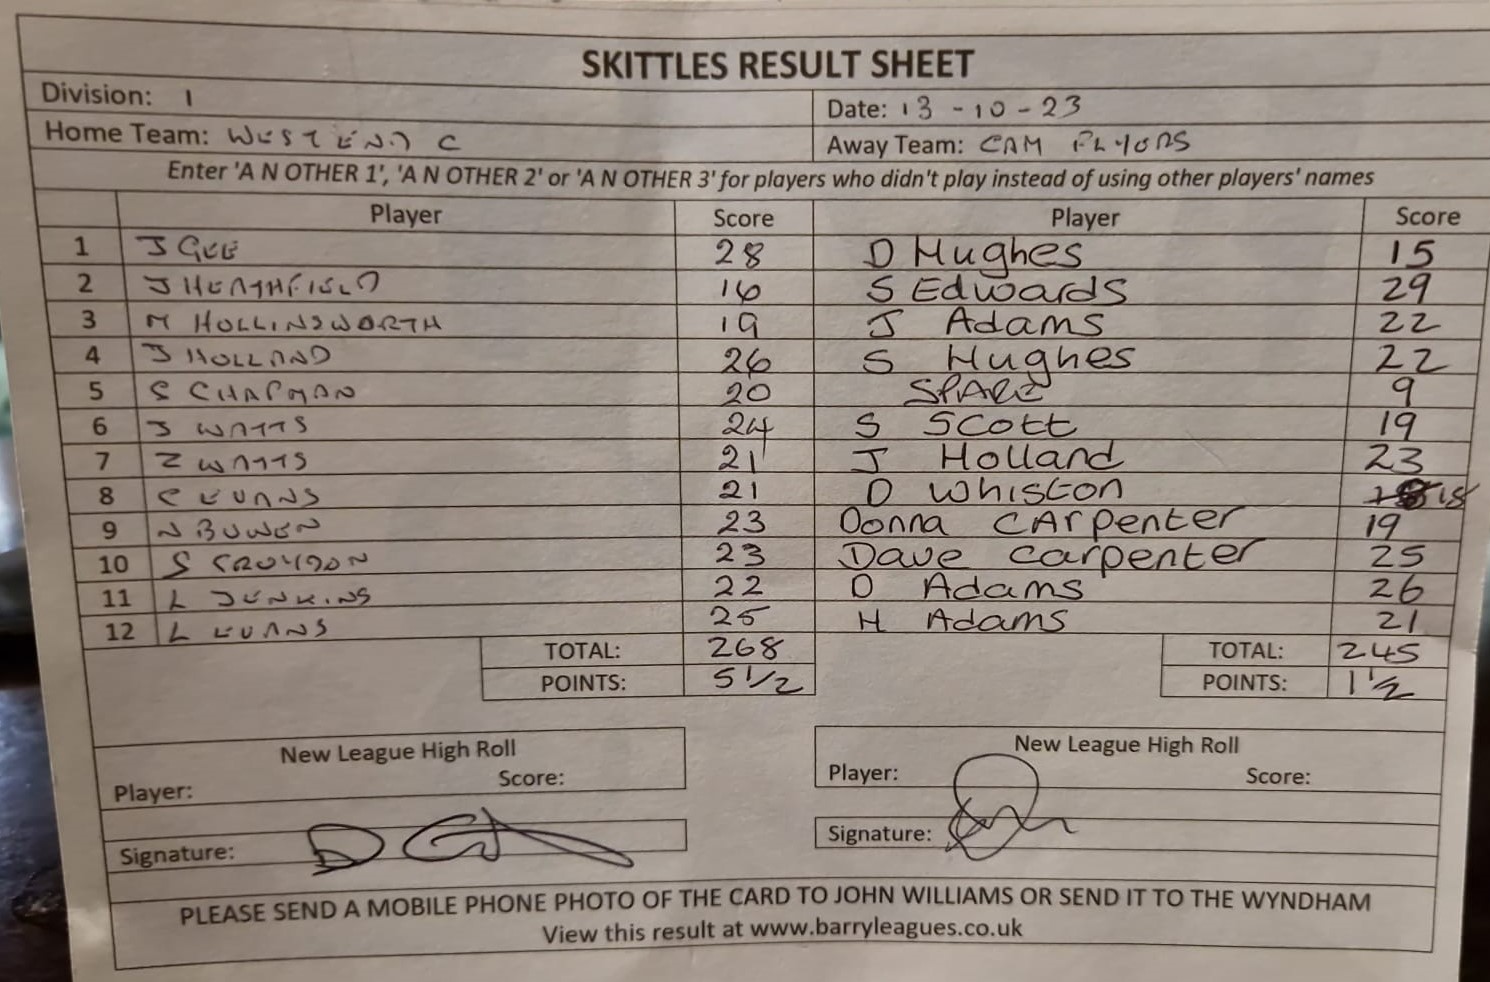 SKITTLES RESULT SHEET
Division: 1 Date: 13-10-23
Home Team: WEST END C Away Team: CAM PLYERS
Enter 'A N OTHER 1', 'A N OTHER 2' or 'A N OTHER 3' for players who didn't play instead of using other players' names
Player Score Player Score
1 J GEE 28 D Hughes 15
2 J HEATHFIELD 16 S Edwards 29
3 M HOLLINSWORTH 19 J Adams 22
4 J HOLLAND 26 S Hughes 22
5 S CHAPMAN 20 SPARE 9
6 J WATTS 24 S Scott 19
7 Z WATTS 21 J Holland 23
8 C EVANS 21 D Whiston 15
9 N BOWEN 23 Donna CArpenter 19
10 S CROYDON 23 Dave Carpenter 25
11 L JENKINS 22 D Adams 26
12 L EVANS 25 H Adams 21
TOTAL: 268 TOTAL: 245
POINTS: 5 1/2 POINTS: 1 1/2
New League High Roll New League High Roll
Player: Score: Player: Score:
Signature: Signature:
PLEASE SEND A MOBILE PHONE PHOTO OF THE CARD TO JOHN WILLIAMS OR SEND IT TO THE WYNDHAM
View this result at www.barryleagues.co.uk